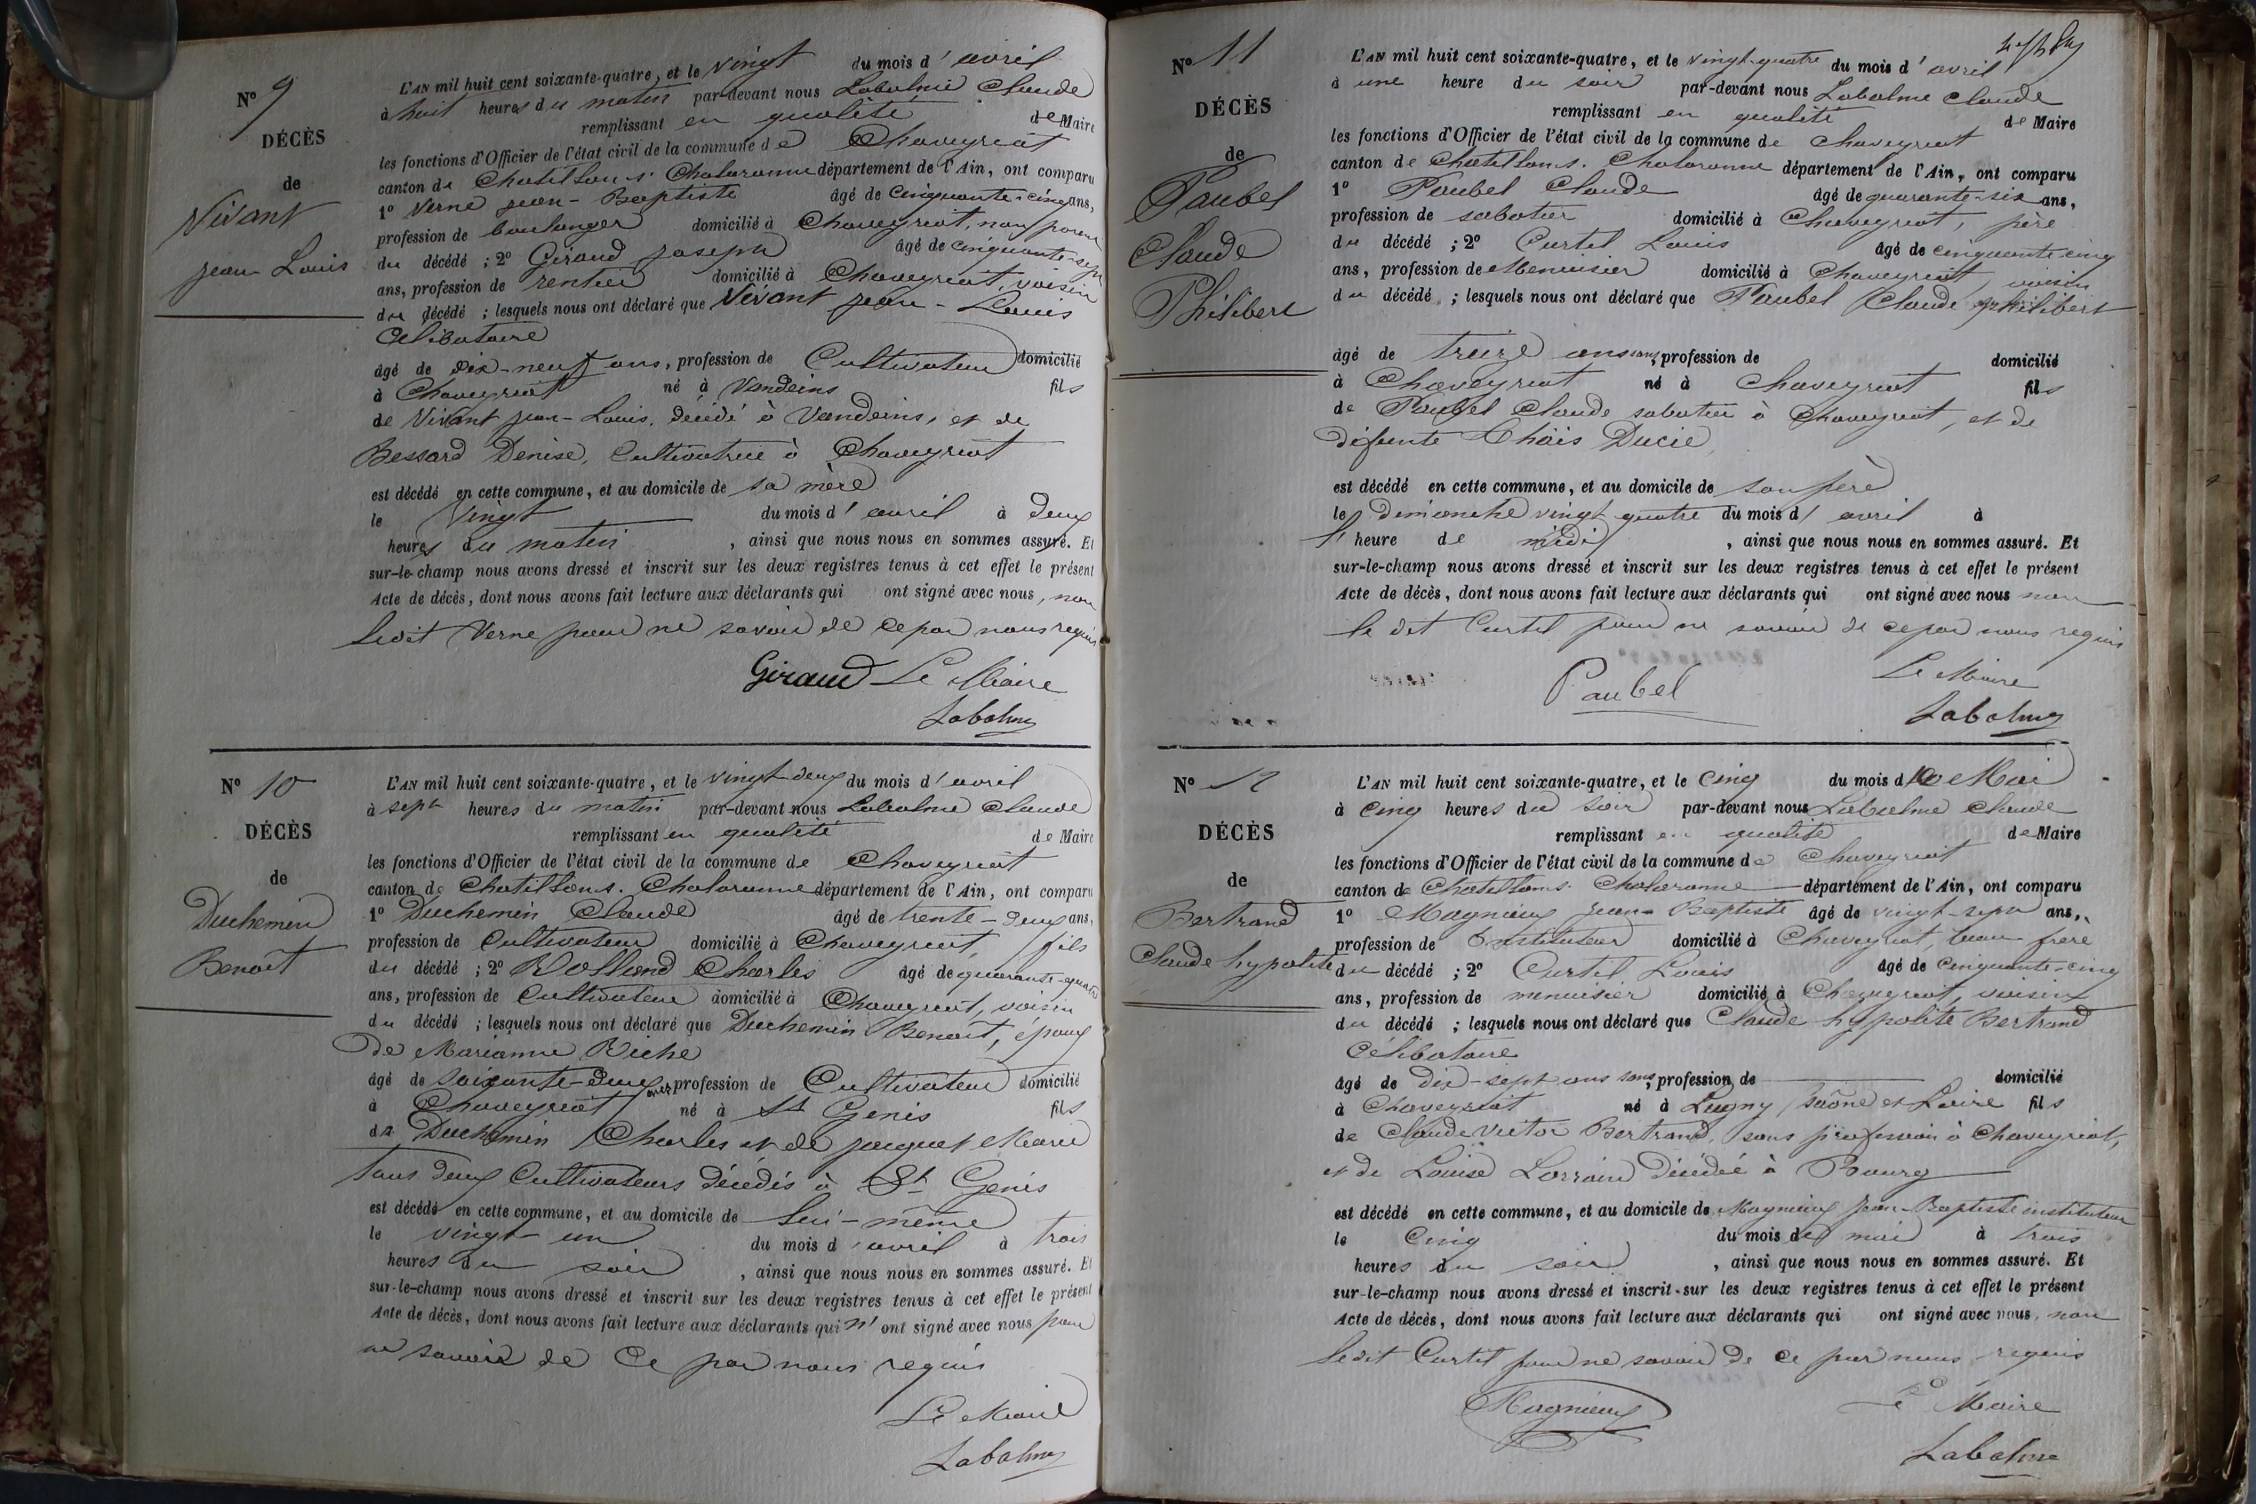 N° 9
DÉCÈS
de
Vivant
Jean Louis
L'AN mil huit cent soixante-quatre, et le vingt du mois d'avril
à huit heures du matin par-devant nous Labalme Claude
remplissant en qualité de Maire
les fonctions d'Officier de l'état civil de la commune de Chaveyriat
canton de Chatillon-s. Chalaronne département de l'Ain, ont comparu
1° Verne Jean-Baptiste âgé de cinquante-cinq ans,
profession de boulanger domicilié à Chaveyriat, non parent
du décédé ; 2° Giraud Joseph âgé de cinquante-sept
ans, profession de rentier domicilié à Chaveyriat, voisin
du décédé ; lesquels nous ont déclaré que Vivant Jean-Louis
Célibataire
âgé de dix-neuf ans, profession de Cultivateur domicilié
à Chaveyriat né à Vandeins fils
de Vivant Jean-Louis, décédé à Vandeins, et de
Bessard Denise, Cultivatrice à Chaveyriat
est décédé en cette commune, et au domicile de sa mère
le vingt du mois d'avril à deux
heures du matin, ainsi que nous nous en sommes assuré. Et
sur-le-champ nous avons dressé et inscrit sur les deux registres tenus à cet effet le présent
Acte de décès, dont nous avons fait lecture aux déclarants qui ont signé avec nous, non
ledit Verne pour ne savoir de ce par nous requis
Giraud Le Maire
Labalme
N° 10
DÉCÈS
de
Duchemin
Benoît
L'AN mil huit cent soixante-quatre, et le vingt-deux du mois d'avril
à sept heures du matin par-devant nous Labalme Claude
remplissant en qualité de Maire
les fonctions d'Officier de l'état civil de la commune de Chaveyriat
canton de Chatillon-s. Chalaronne département de l'Ain, ont comparu
1° Duchemin Claude âgé de trente-deux ans,
profession de Cultivateur domicilié à Chaveyriat, fils
du décédé ; 2° Rolland Charles âgé de quarante-quatre
ans, profession de Cultivateur domicilié à Chaveyriat, voisin
du décédé ; lesquels nous ont déclaré que Duchemin Benoît, époux
de Marianne Riche
âgé de soixante-deux ans, profession de Cultivateur domicilié
à Chaveyriat né à St Genis fils
de Duchemin Charles et de Jacquet Marie
tous deux Cultivateurs décédés à St Genis
est décédé en cette commune, et au domicile de lui-même
le vingt-un du mois d'avril à trois
heures du soir, ainsi que nous nous en sommes assuré. Et
sur-le-champ nous avons dressé et inscrit sur les deux registres tenus à cet effet le présent
Acte de décès, dont nous avons fait lecture aux déclarants qui n'ont signé avec nous pour
ne savoir de ce par nous requis
Le Maire
Labalme
N° 11
DÉCÈS
de
Paubel
Claude
Philibert
L'AN mil huit cent soixante-quatre, et le vingt-quatre du mois d'avril
à une heure du soir par-devant nous Labalme Claude
remplissant en qualité de Maire
les fonctions d'Officier de l'état civil de la commune de Chaveyriat
canton de Chatillon-s. Chalaronne département de l'Ain, ont comparu
1° Paubel Claude âgé de quarante-six ans,
profession de sabotier domicilié à Chaveyriat, père
du décédé ; 2° Curtil Louis âgé de cinquante-cinq
ans, profession de Menuisier domicilié à Chaveyriat, voisin
du décédé ; lesquels nous ont déclaré que Paubel Claude philibert
âgé de treize ans sans, profession de domicilié
à Chaveyriat né à Chaveyriat fils
de Paubel Claude sabotier à Chaveyriat, et de
défunte Chais Ducie
est décédé en cette commune, et au domicile de son père
le dimanche vingt quatre du mois d'avril à
l'heure de midi, ainsi que nous nous en sommes assuré. Et
sur-le-champ nous avons dressé et inscrit sur les deux registres tenus à cet effet le présent
Acte de décès, dont nous avons fait lecture aux déclarants qui ont signé avec nous non
le dit Curtil pour ne savoir de ce par nous requis
Paubel Le Maire
Labalme
N° 12
DÉCÈS
de
Bertrand
Claude hypolite
L'AN mil huit cent soixante-quatre, et le cinq du mois de Mai
à cinq heures du soir par-devant nous Labalme Claude
remplissant en qualité de Maire
les fonctions d'Officier de l'état civil de la commune de Chaveyriat
canton de Chatillon-s. Chalaronne département de l'Ain, ont comparu
1° Magnieux Jean-Baptiste âgé de vingt-sept ans,
profession de Instituteur domicilié à Chaveyriat, beau frère
du décédé ; 2° Curtil Louis âgé de cinquante-cinq
ans, profession de menuisier domicilié à Chaveyriat, voisin
du décédé ; lesquels nous ont déclaré que Claude hypolite Bertrand
célibataire
âgé de dix-sept ans sans, profession de domicilié
à Chaveyriat né à Lugny, Saône et Loire fils
de Claude Victor Bertrand, sans profession à Chaveyriat,
et de Louise Lorrain décédée à Bourg
est décédé en cette commune, et au domicile de Magnieux Jean-Baptiste instituteur
le cinq du mois de mai à trois
heures du soir, ainsi que nous nous en sommes assuré. Et
sur-le-champ nous avons dressé et inscrit sur les deux registres tenus à cet effet le présent
Acte de décès, dont nous avons fait lecture aux déclarants qui ont signé avec nous, non
ledit Curtil pour ne savoir de ce par nous requis
Magnieux Le Maire
Labalme